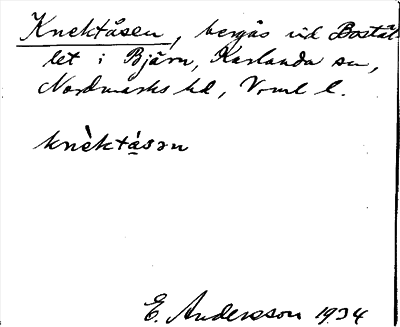 Knektåsen, bergås vid Bostäl-
let i Bjärn, Karlanda sn,
Nordmarks hd, Vrml l.
knèktåsən
E. Andersson 1934